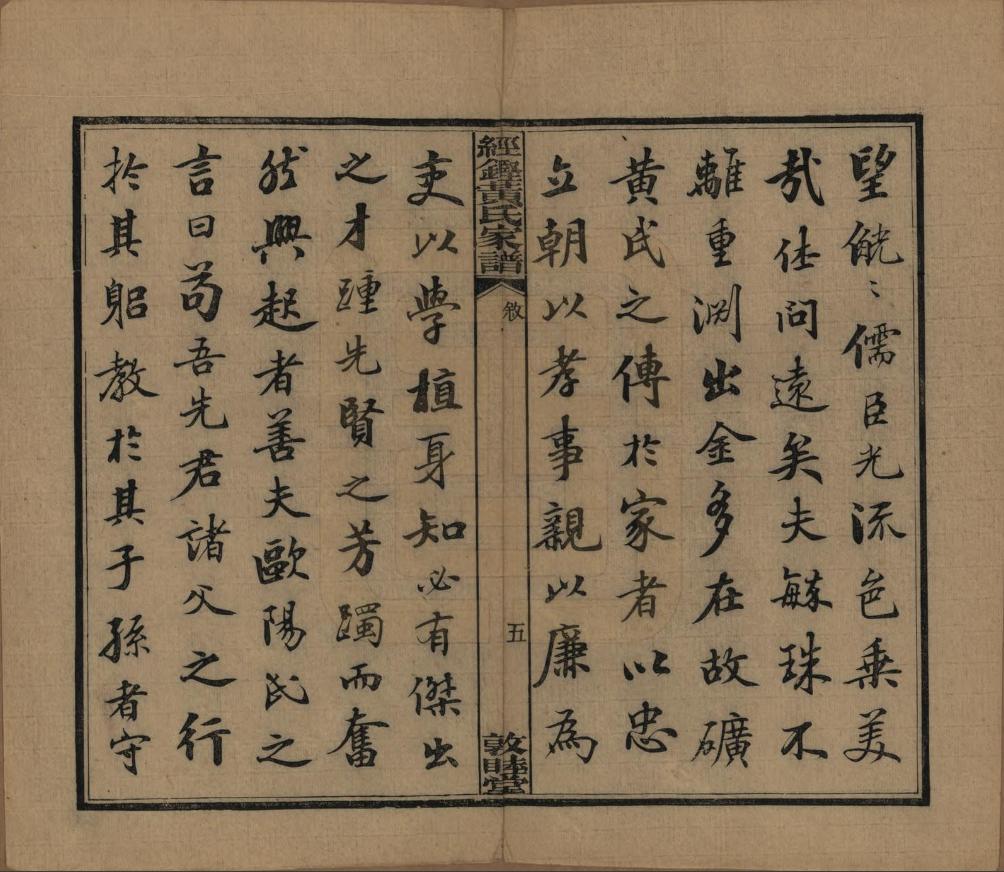 望觥〻儒臣光流邑乗美
哉佳問遠矣夫毓珠不
離重淵出金多在故礦
黄氏之傳於家者以忠
立朝以孝事親以廉為
經鏗黃氏家譜
敘
五
敦睦堂
吏以學植身知必有傑出
之才踵先賢之芳躅而奮
然興起者善夫歐陽氏之
言曰苟吾先君諸父之行
於其躳教於其子孫者守